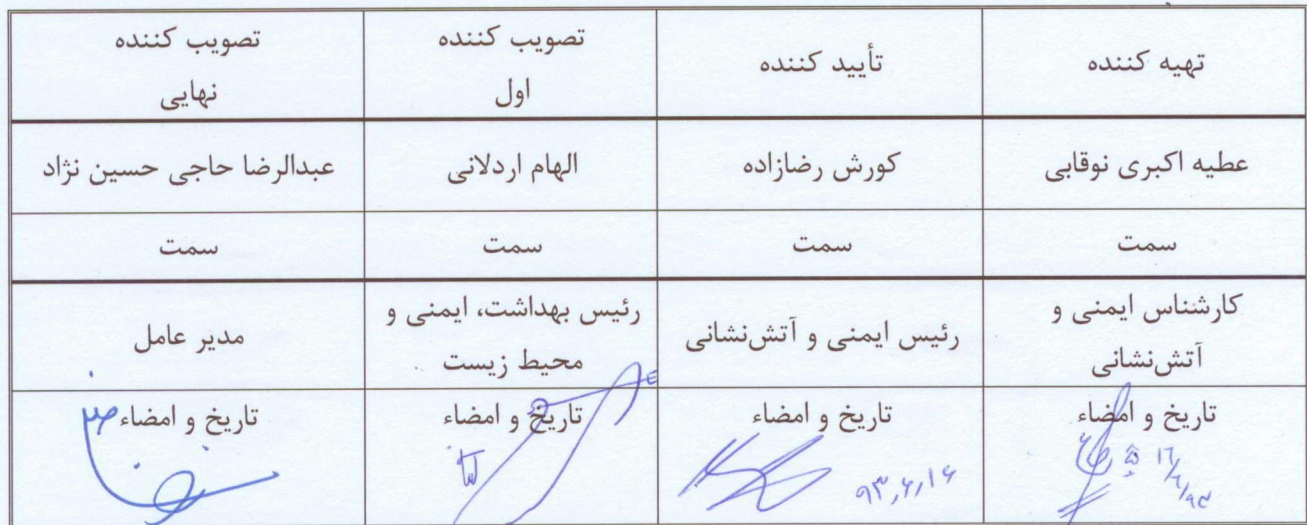 تهیه کننده
تأیید کننده
تصویب کننده
اول
تصویب کننده
نهایی
عطیه اکبری نوقابی
کورش رضازاده
الهام اردلانی
عبدالرضا حاجی حسین نژاد
سمت
سمت
سمت
سمت
کارشناس ایمنی و
آتش‌نشانی
رئیس ایمنی و آتش‌نشانی
رئیس بهداشت، ایمنی و
محیط زیست
مدیر عامل
تاریخ و امضاء
تاریخ و امضاء
۹۳,۶,۱۶
تاریخ و امضاء
تاریخ و امضاء